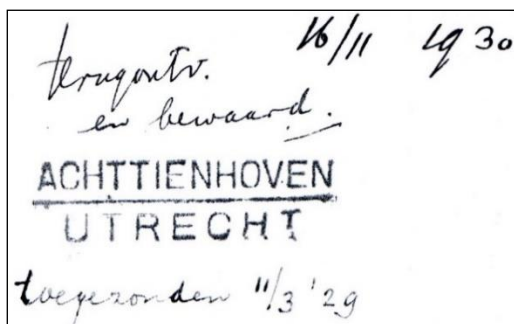 terugontv. 16/11 1930
en bewaard.
ACHTTIENHOVEN
UTRECHT
toegezonden 11/3 '29